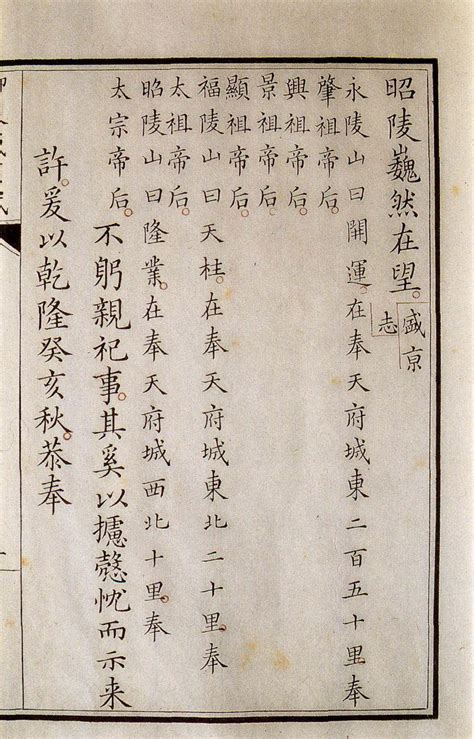 昭陵巍然在望。盛亰志
永陵山曰開運。在奉天府城東二百五十里奉
肇祖帝后。
興祖帝后。
景祖帝后。
顯祖帝后。
福陵山曰天柱在奉天府城東北二十里。奉
太祖帝后。
昭陵山曰隆業。在奉天府城西北十里。奉
太宗帝后。不躬親祀事。其奚以攄慤忱而示来
許。爰以乾隆癸亥秋。恭奉